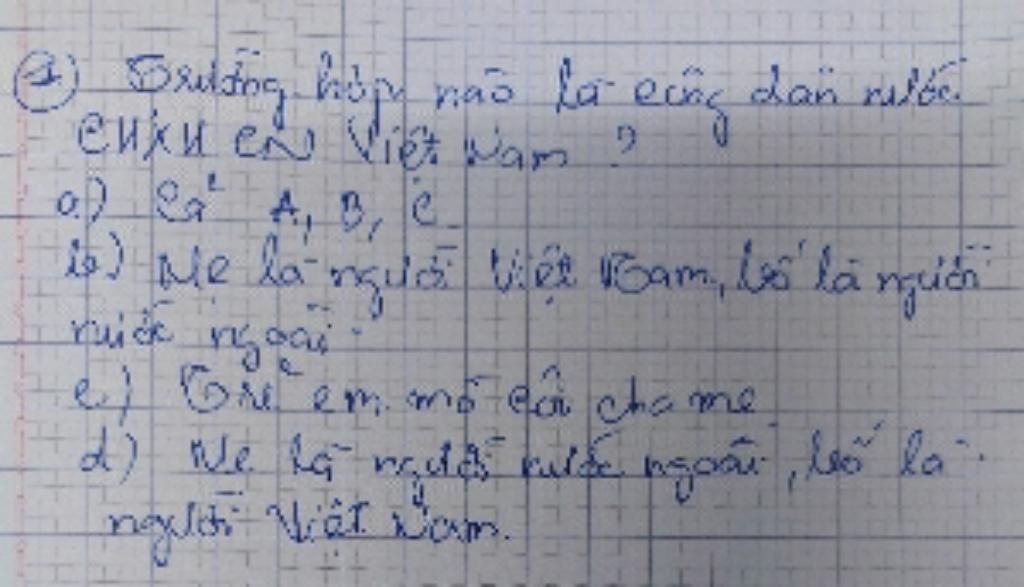 1) Trường hợp nào là công dân nước
CHXH CN Việt Nam ?
a) Cả A, B, C
b) Mẹ là người Việt Nam, bố là người
nước ngoài.
c) Trẻ em mồ côi cha mẹ
d) Mẹ là người nước ngoài, bố là
người Việt Nam.